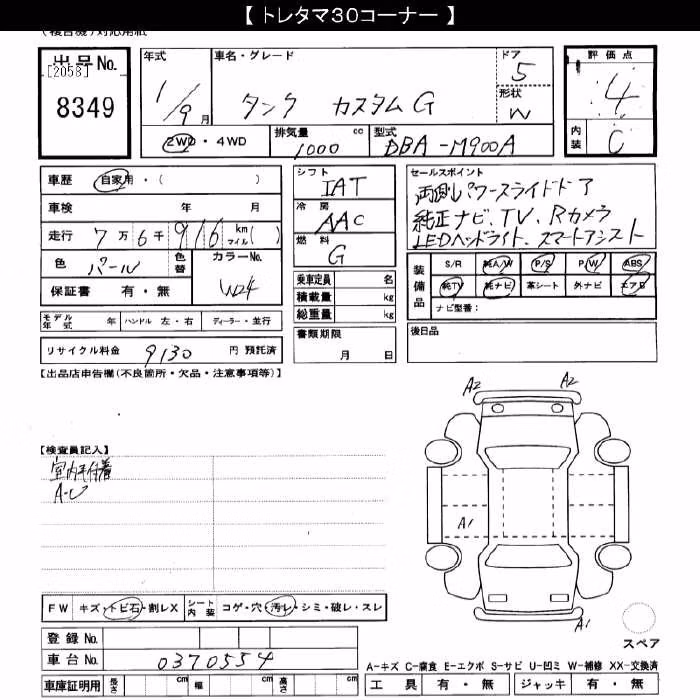 【 トレタマ30コーナー 】
(複合機)対応用紙
出品No. [2058]
8349
年式 1/9月
車名・グレード タンク カスタムG
ドア 5
形状 W
評価点 4
内装 C
2WD・4WD
排気量 1000 cc
型式 DBA-M900A
車歴 自家用・( )
車検 年 月
走行 7万6千916 km マイル( )
色 パール
色替
カラーNo. W24
保証書 有・無
シフト IAT
冷房 AAC
燃料 G
乗車定員 名
積載量 kg
総重量 kg
書類期限
月 日
セールスポイント
両側パワースライドドア
純正ナビ、TV、Rカメラ
LEDヘッドライト、スマートアシスト
装備品
S/R 純A/W P/S P/W ABS
純TV 純ナビ 革シート 外ナビ エアB
ナビ型番:
後日品
モデル年式 年 ハンドル 左・右 ディーラー・並行
リサイクル料金 9130 円 預託済
【出品店申告欄(不良箇所・欠品・注意事項等)】
【検査員記入】
A2
A2
A1
A1
FW キズ・トビ石・割レX
シート内装 コゲ・穴・汚レ・シミ・破レ・スレ
登録No.
車台No. 0370554
スペア
A-キズ C-腐食 E-エクボ S-サビ U-凹ミ W-補修 XX-交換済
車庫証明用 長さ cm 幅 cm 高さ cm
工具 有・無 ジャッキ 有・無